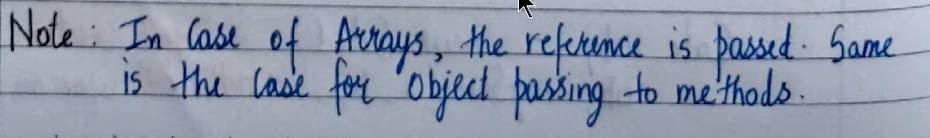 Note: In Case of Arrays, the reference is passed. Same
is the case for Object passing to methods.